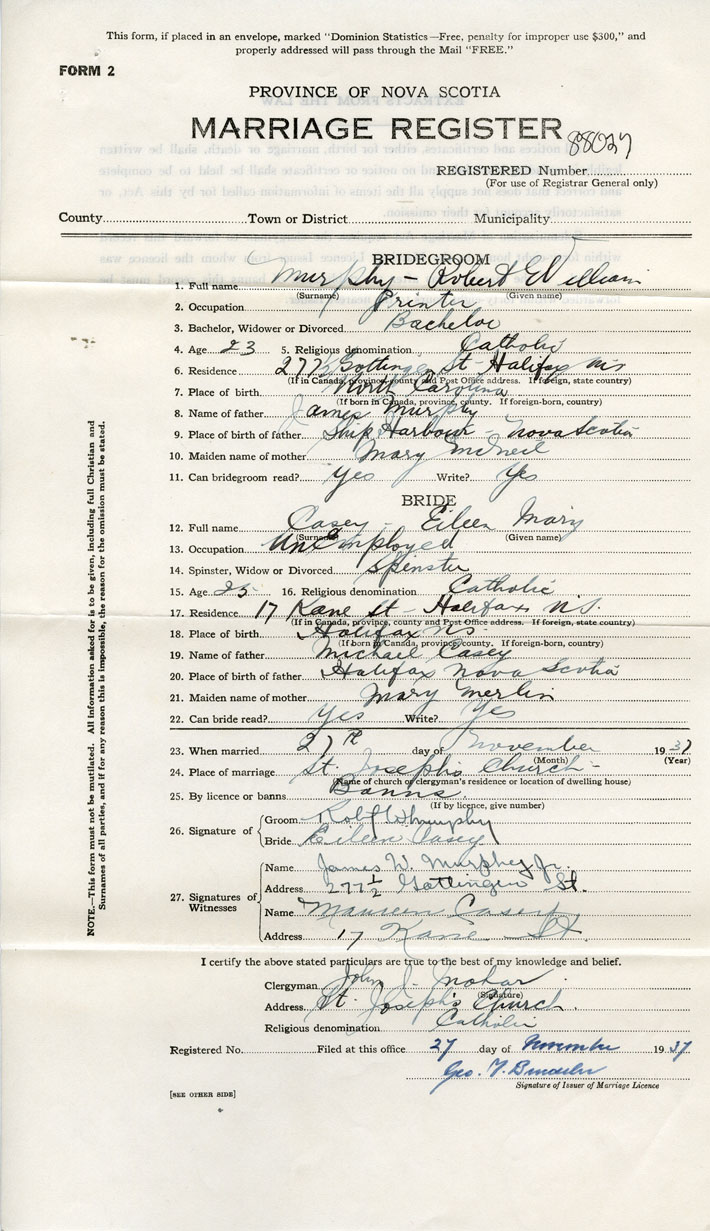 This form, if placed in an envelope, marked "Dominion Statistics—Free, penalty for improper use $300," and
properly addressed will pass through the Mail "FREE."
FORM 2
PROVINCE OF NOVA SCOTIA
MARRIAGE REGISTER
88027
REGISTERED Number
(For use of Registrar General only)
County Town or District Municipality
BRIDEGROOM
1. Full name Murphy - Robert William
(Surname) (Given name)
2. Occupation Printer
3. Bachelor, Widower or Divorced Bachelor
4. Age 23 5. Religious denomination Catholic
6. Residence 277½ Gottingen St - Halifax NS
(If in Canada, province, county and Post Office address. If foreign, state country)
7. Place of birth North Carolina
(If born in Canada, province, county. If foreign-born, country)
8. Name of father James Murphy
9. Place of birth of father Ship Harbour - Nova Scotia
10. Maiden name of mother Mary McNeil
11. Can bridegroom read? Yes Write? Yes
BRIDE
12. Full name Casey - Eileen Mary
(Surname) (Given name)
13. Occupation Unemployed
14. Spinster, Widow or Divorced Spinster
15. Age 25 16. Religious denomination Catholic
17. Residence 17 Kane St - Halifax N.S.
(If in Canada, province, county and Post Office address. If foreign, state country)
18. Place of birth Halifax N.S.
(If born in Canada, province, county. If foreign-born, country)
19. Name of father Michael Casey
20. Place of birth of father Halifax Nova Scotia
21. Maiden name of mother Mary Merlin
22. Can bride read? Yes Write? Yes
23. When married 27th day of November 1937
(Month) (Year)
24. Place of marriage St. Joseph's Church -
(Name of church or clergyman's residence or location of dwelling house)
25. By licence or banns Banns
(If by licence, give number)
26. Signature of
Groom Robt W Murphy
Bride Eileen Casey
27. Signatures of Witnesses
Name James W. Murphy Jr.
Address 277½ Gottingen St.
Name Maureen Casey
Address 17 Kane St.
I certify the above stated particulars are true to the best of my knowledge and belief.
Clergyman John J.
(Signature)
Address St. Joseph's Church.
Religious denomination Catholic
Registered No. Filed at this office 27 day of November 1937
Geo. T.
Signature of Issuer of Marriage Licence
[SEE OTHER SIDE]
NOTE.—This form must not be mutilated. All information asked for is to be given, including full Christian and
Surnames of all parties, and if for any reason this is impossible, the reason for the omission must be stated.